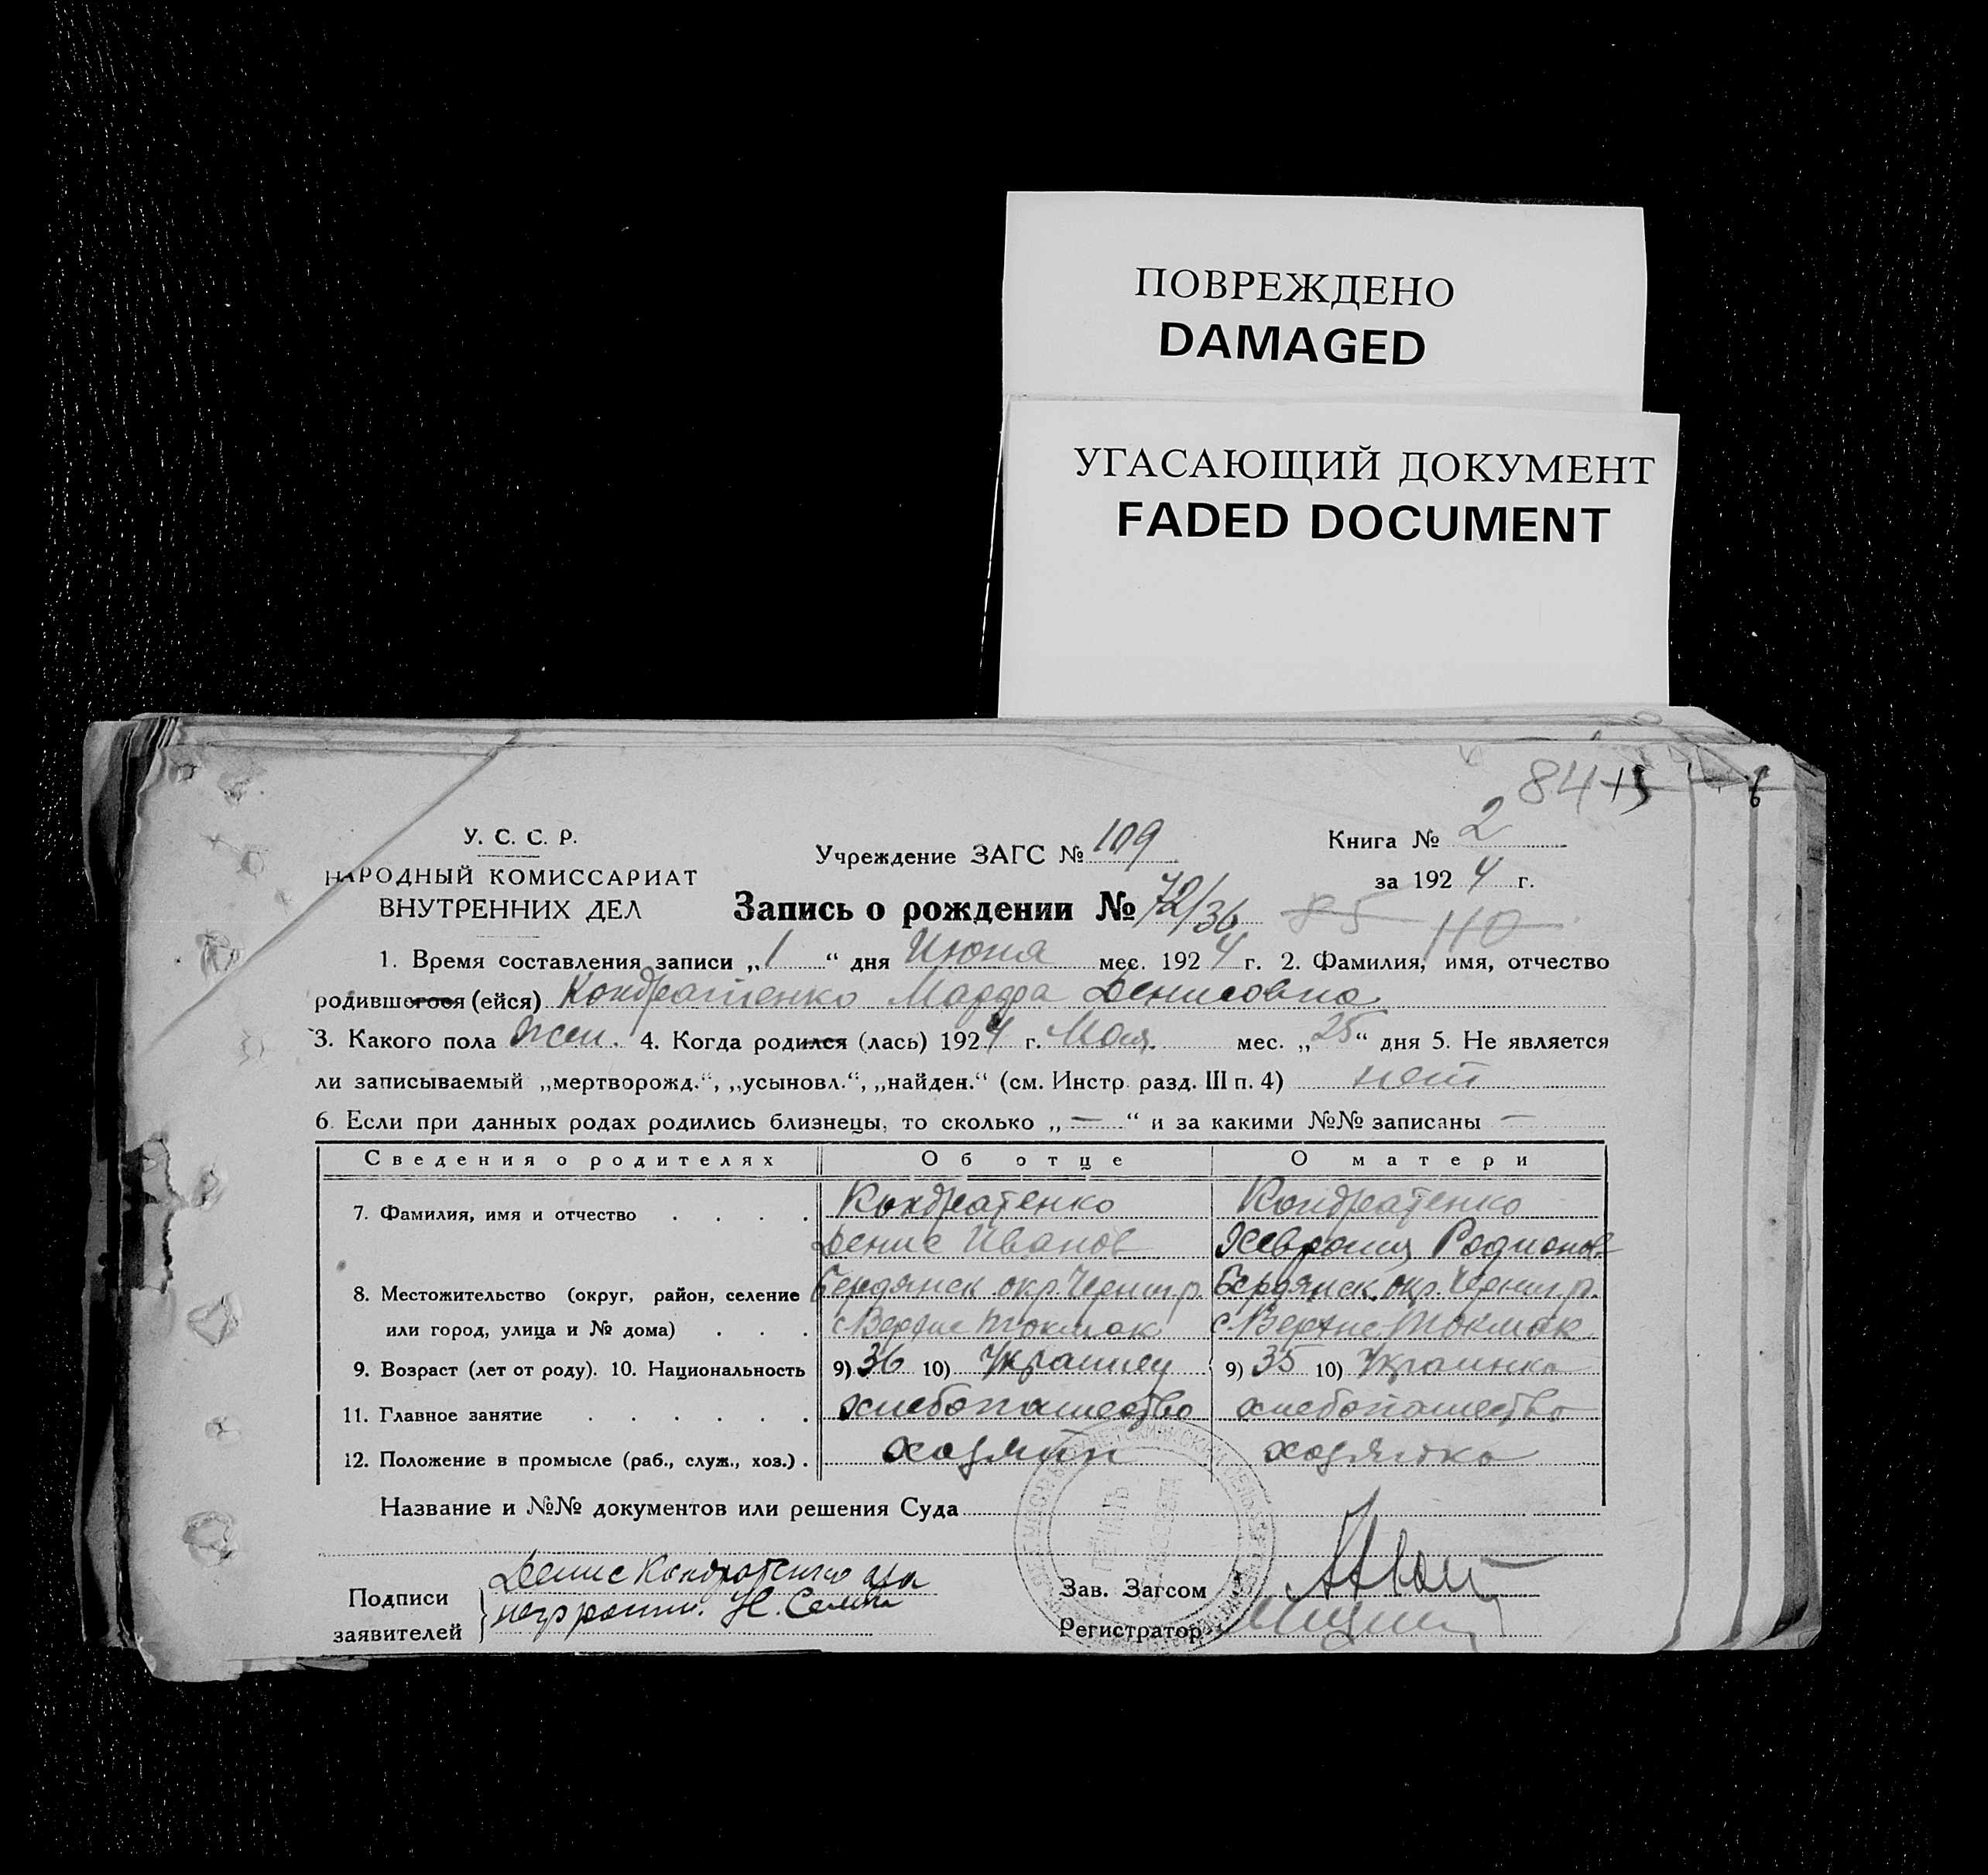 ПОВРЕЖДЕНО
DAMAGED
УГАСАЮЩИЙ ДОКУМЕНТ
FADED DOCUMENT
84
У. С. С. Р.
НАРОДНЫЙ КОМИССАРИАТ
ВНУТРЕННИХ ДЕЛ
Учреждение ЗАГС № 109
Книга № 2
за 1924 г.
Запись о рождении № 72/36 85 110
1. Время составления записи „1“ дня Июня мес. 1924 г. 2. Фамилия, имя, отчество
родившегося (ейся) Кондратенко Марфа Денисовна
3. Какого пола жен. 4. Когда родился (лась) 1924 г. Мая. мес. „25“ дня 5. Не является
ли записываемый „мертворожд.“, „усыновл.“, „найден.“ (см. Инстр. разд. III п. 4) нет
6. Если при данных родах родились близнецы, то сколько „—“ и за какими №№ записаны —
Сведения о родителях Об отце О матери
7. Фамилия, имя и отчество . . . . Кондратенко Кондратенко
Денис Иванов Хеврония Родионов.
8. Местожительство (округ, район, селение Бердянск окр. Черниг р. Бердянск. окр. Черниг р.
или город, улица и № дома) . . . с Верхне Токмак с. Верхне Токмак
9. Возраст (лет от роду). 10. Национальность 9) 36 10) Украинец 9) 35 10) Украинка
11. Главное занятие . . . . . . хлебопашество хлебопашество
12. Положение в промысле (раб., служ., хоз.) . хозяин хозяйка
Название и №№ документов или решения Суда
Подписи
заявителей
Денис Кондратенко
Зав. Загсом
Регистратор